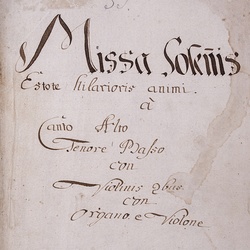 Missa Solen̄is
Estote hilarioris animi.
à
Canto Alto
Tenore Basso
con
Violinis 2bus
con
Organo e Violone